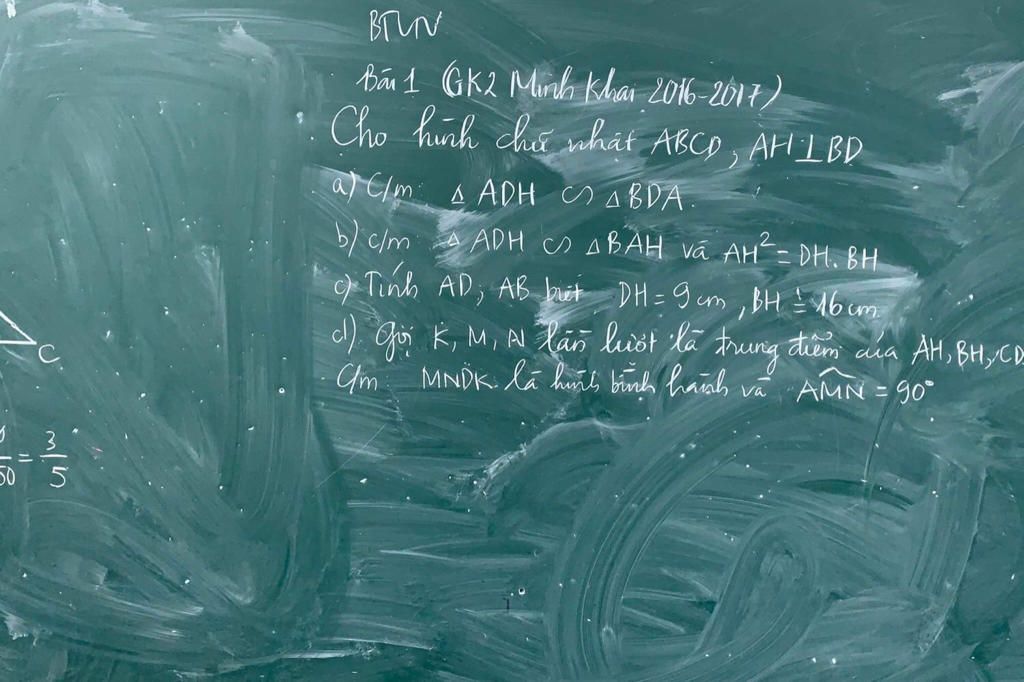 BTVN
Bài 1 (GK2 Minh Khai 2016-2017)
Cho hình chữ nhật ABCD, AH⊥BD
a) C/m Δ ADH ∽ Δ BDA.
b) c/m Δ ADH ∽ Δ BAH và AH² = DH. BH
c) Tính AD, AB biết DH = 9 cm, BH = 16 cm.
d) Gọi K, M, N lần lượt là trung điểm của AH, BH, CD
C/m MNDK là hình bình hành và AMN = 90°
C
50 = 3/5